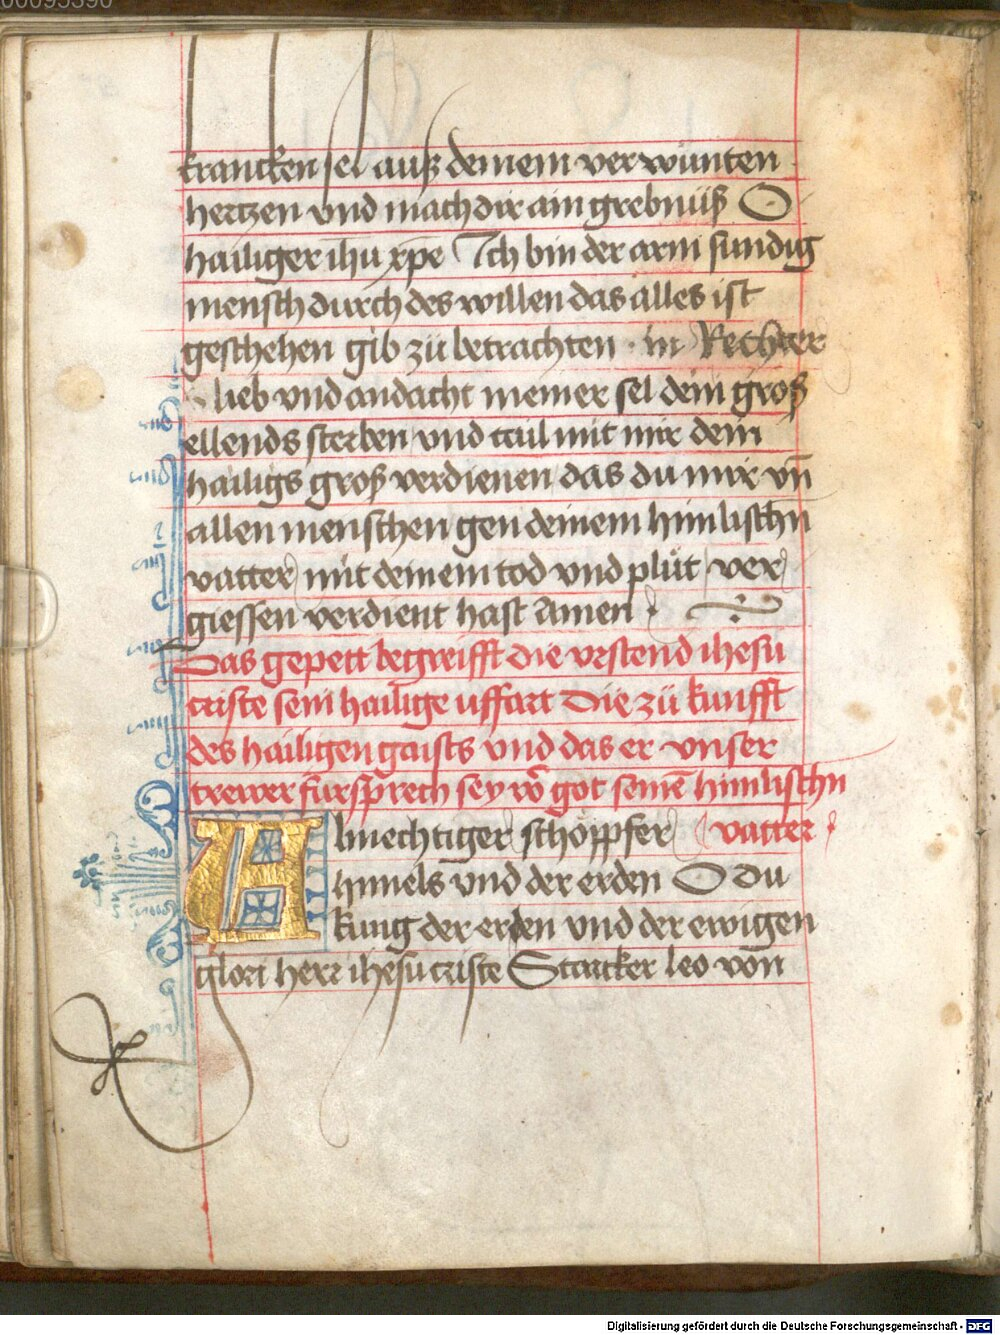 00095390
krancken sel auß deinem ver wunten
hertzen vnd mach dir ain grebnüß O
hailiger ihu xpe Ich bin der arm sundig
mensch durch des willen das alles ist
geschehen gib zü betrachten · in Rechter
lieb vnd andacht meiner sel dein groß
ellends sterben vnd tail mit mir dein
hailigs groß verdienen das du mir vn̄
allen menschen gen deinem himlischn̄
vatter mit deinem tod vnd plůt ver
giessen verdient hast Amen
Das gepett begreifft die vrstend ihesu
criste sein hailige uffart Die zü kunfft
des hailigen gaists vnd das er vnser
trewer fürsprech sey vō got seinē himlischn
Almechtiger schöpffer vatter
himels vnd der erden O du
kung der erden vnd der ewigen
glori herr ihesu criste Starcker leo von
Digitalisierung gefördert durch die Deutsche Forschungsgemeinschaft - DFG